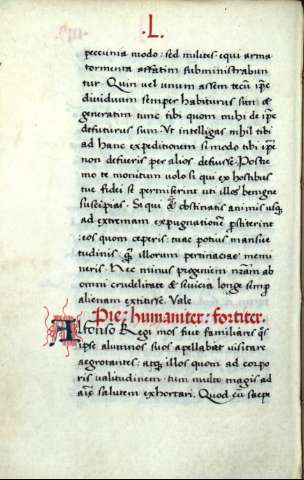 .L.
peccunia modo: sed milites equi arma
tormenta affatim subministrabun
tur. Quin vel unum assem tecū ip̄e
dividuum semper habiturus sum &
generatim tunc tibi quom mihi de ip̄e
defuturus sum. Vt intelligas nihil tibi
ad hanc expeditionem si modo tibi ip̄e
non defueris per alios defuisse. Postre
mo te monitum uolo si qui ex hostibus
tue fidei se permiserint uti illos benigne
suscipias. Si qui obstinatis animis usq̧
ad extremam expugnationē pstiterint
: eos quom ceperis: tuae potius mansue
tudinis: illorum pertinaciae memi
neris. Nec minus progeniem nr̄am ab
omni crudelitate & sevicia longe semp̄
alienam extitisse. Vale
Pie: humaniter: fortiter.
Alfonso Regi mos fuit familiares q̄s
ipse alumnos suos apellabat visitare
aegrotantes: atq̧ illos quom ad corpo
ris valitudinem tum multo magis ad
salutem exhortari. Quod cū saepe